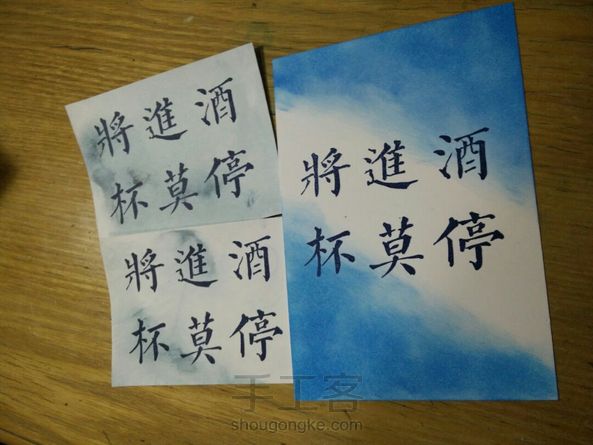 將進酒
杯莫停
將進酒
杯莫停
將進酒
杯莫停
手工客
shougongke.com